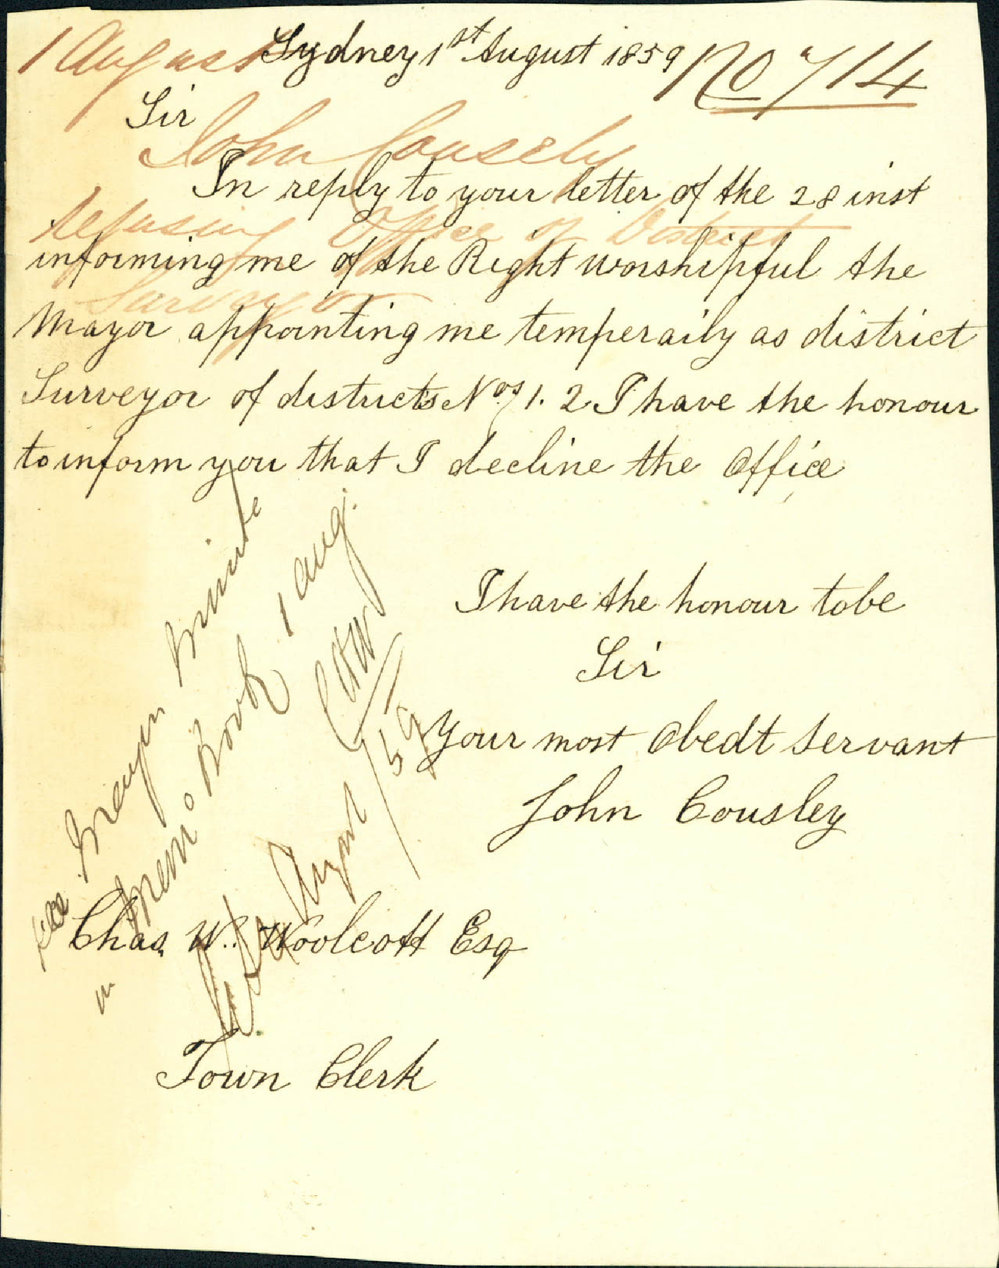 Sydney 1st August 1859
No 714
1 August
Sir
John Cousely
In reply to your letter of the 28 inst
refusing Office of District
informing me of the Right worshipful the
Surveyor
Mayor appointing me temperaily as district
Surveyor of districts Nos/ 1. 2 I have the honour
to inform you that I decline the Office
I have the honour to be
Sir
Your most Obedt Servant
John Cousley
see Mayor minute
in Memo Book 1 Aug.
CHW
August /59
Chas. W. Woolcott Esq
Town Clerk